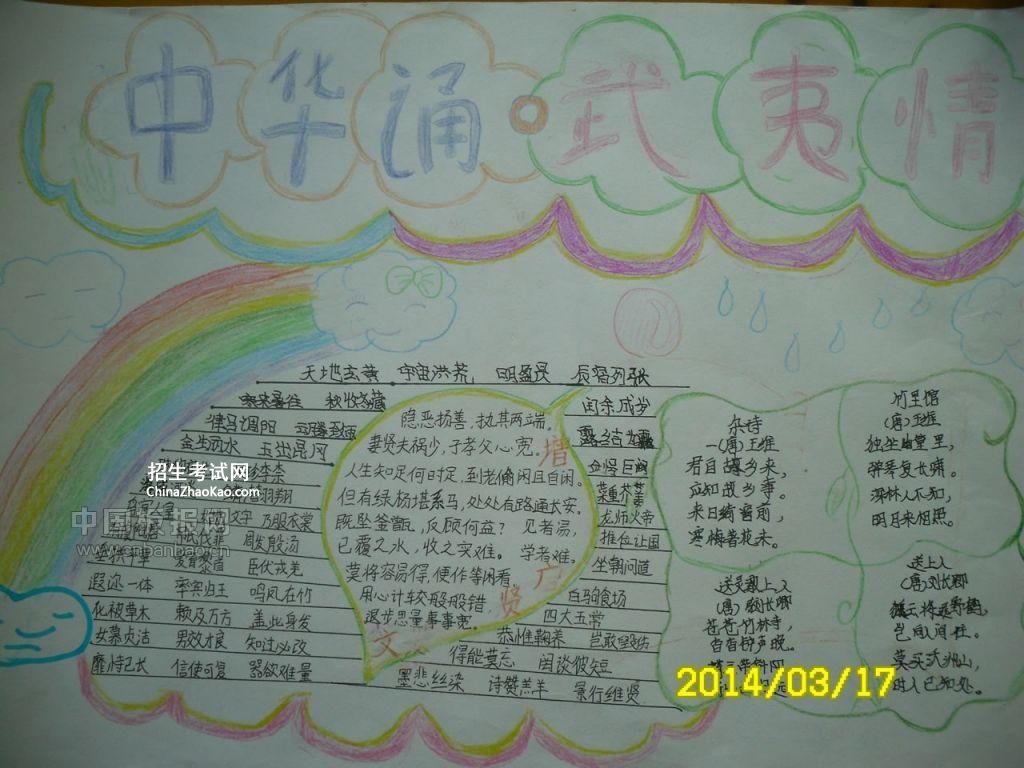 中华诵·武夷情
天地玄黄 宇宙洪荒 日月盈昃 辰宿列张
寒来暑往 秋收冬藏
闰余成岁
律吕调阳 云腾致雨
露结为霜
金生丽水 玉出昆冈
剑号巨阙
菜重芥姜
龙师火帝
文字 乃服衣裳
推位让国
周发殷汤
坐朝问道
爱育黎首 臣伏戎羌
遐迩一体 率宾归王 鸣凤在竹
白驹食场
化被草木 赖及万方 盖此身发
四大五常
女慕贞洁 男效才良 知过必改
恭惟鞠养 岂敢毁伤
得能莫忘 罔谈彼短
靡恃己长 信使可复 器欲难量
墨悲丝染 诗赞羔羊 景行维贤
隐恶扬善,执其两端。
妻贤夫祸少,子孝父心宽。
人生知足何时足,到老偷闲且自闲。
但有绿杨堪系马,处处有路通长安。
既坠釜甑,反顾何益? 见者易,
已覆之水,收之实难。 学者难。
莫将容易得,便作等闲看。
用心计较般般错,
退步思量事事宽。
增
广
贤
文
杂诗
(唐)王维
君自故乡来,
应知故乡事。
来日绮窗前,
寒梅著花未。
竹里馆
(唐)王维
独坐幽篁里,
弹琴复长啸。
深林人不知,
明月来相照。
送灵澈上人
(唐)刘长卿
苍苍竹林寺,
杳杳钟声晚。
送上人
(唐)刘长卿
孤云将野鹤,
岂向人间住。
莫买沃洲山,
时人已知处。
招生考试网
ChinaZhaoKao.com
2014/03/17